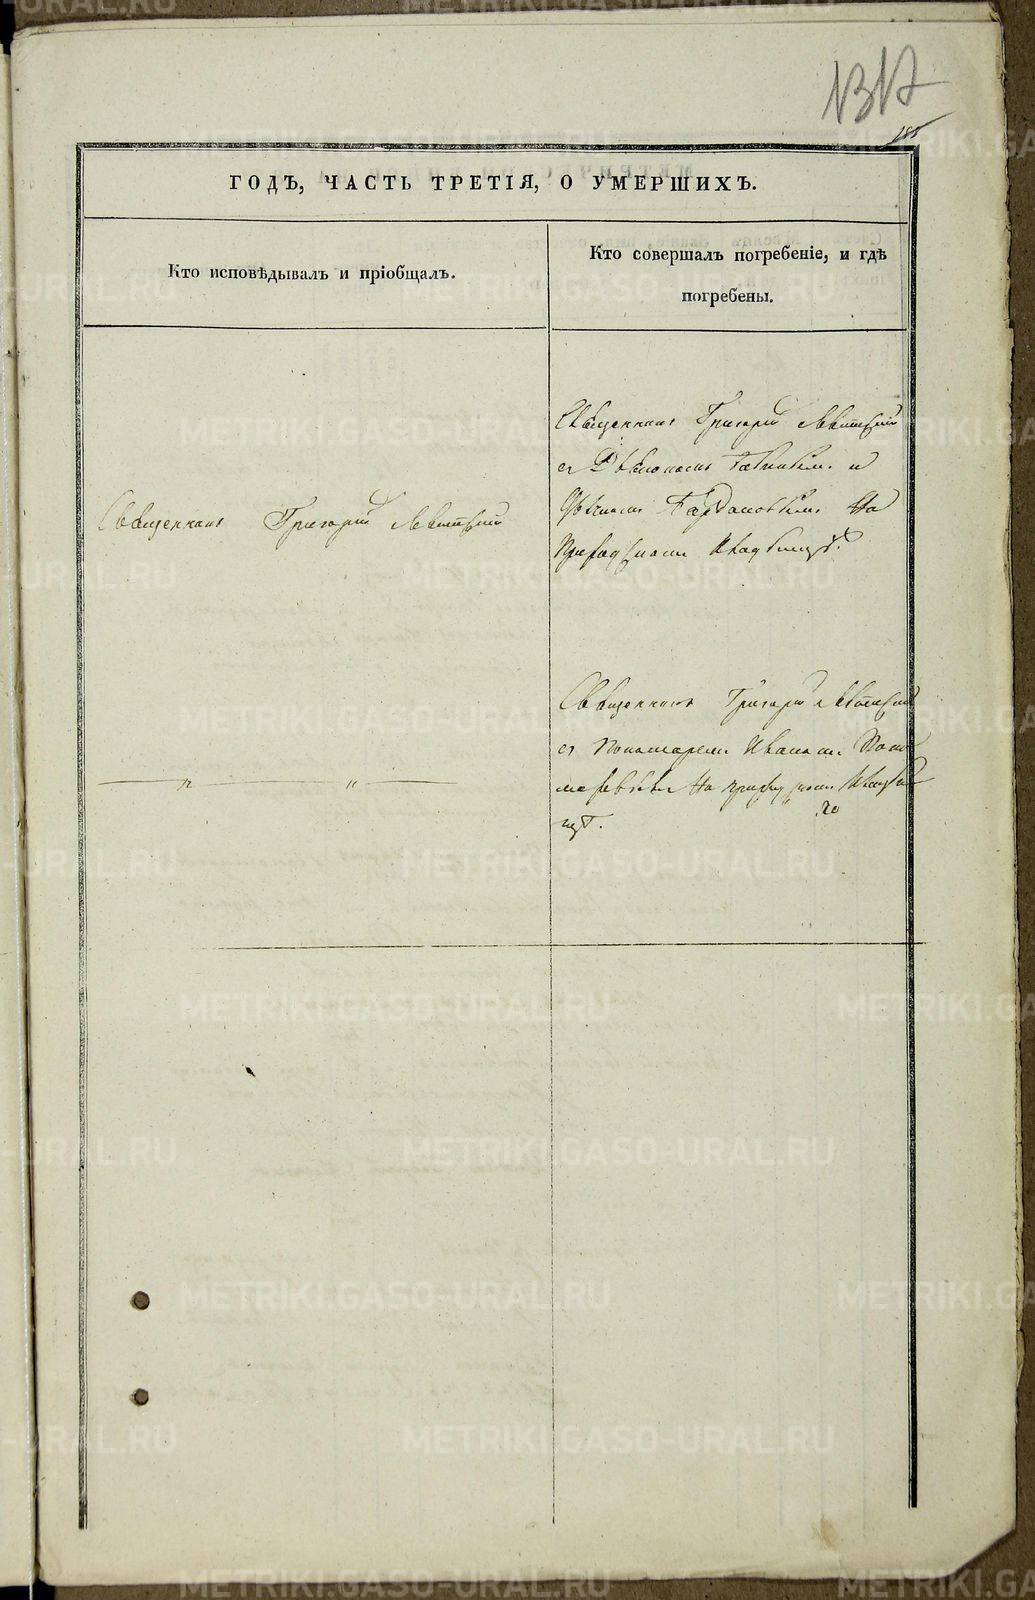 185
ГОДЪ, ЧАСТЬ ТРЕТІЯ, О УМЕРШИХЪ.
Кто исповѣдывалъ и пріобщалъ.
Кто совершалъ погребеніе, и гдѣ
погребены.
Священникъ Григорій Левитскій
Священникъ Григорій Левитскій
съ Діакономъ и
На
Приходскомъ Кладбищѣ.
— „ — „ —
Священникъ Григорій Левитскій
съ Пономаремъ Иваномъ Поно
маревымъ На приходскомъ Кладби
щѣ.
METRIKI.GASO-URAL.RU